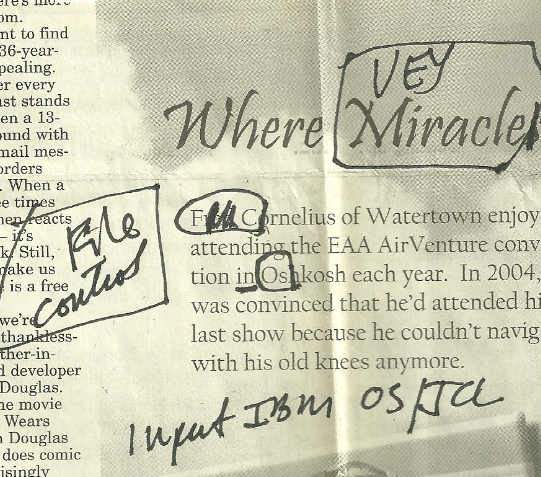 om.
nt to find
36-year-
pealing.
er every
ust stands
en a 13-
ound with
mail mes-
orders
. When a
ee times
hen reacts
– it's
k. Still,
make us
is a free
we're
thankless-
ther-in-
d developer
Douglas.
he movie
Wears
n Douglas
does comic
isingly
VEY
Where Miracles
File
control
Cornelius of Watertown enjoy
attending the EAA AirVenture conv
tion in Oshkosh each year. In 2004,
was convinced that he'd attended hi
last show because he couldn't navig
with his old knees anymore.
Input IBM OS/JCL